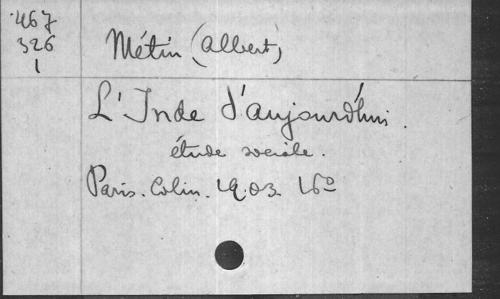 467
326
1
Métin (Albert)
L'Inde d'aujourd'hui.
étude sociale.
Paris. Colin. 1903. 16º